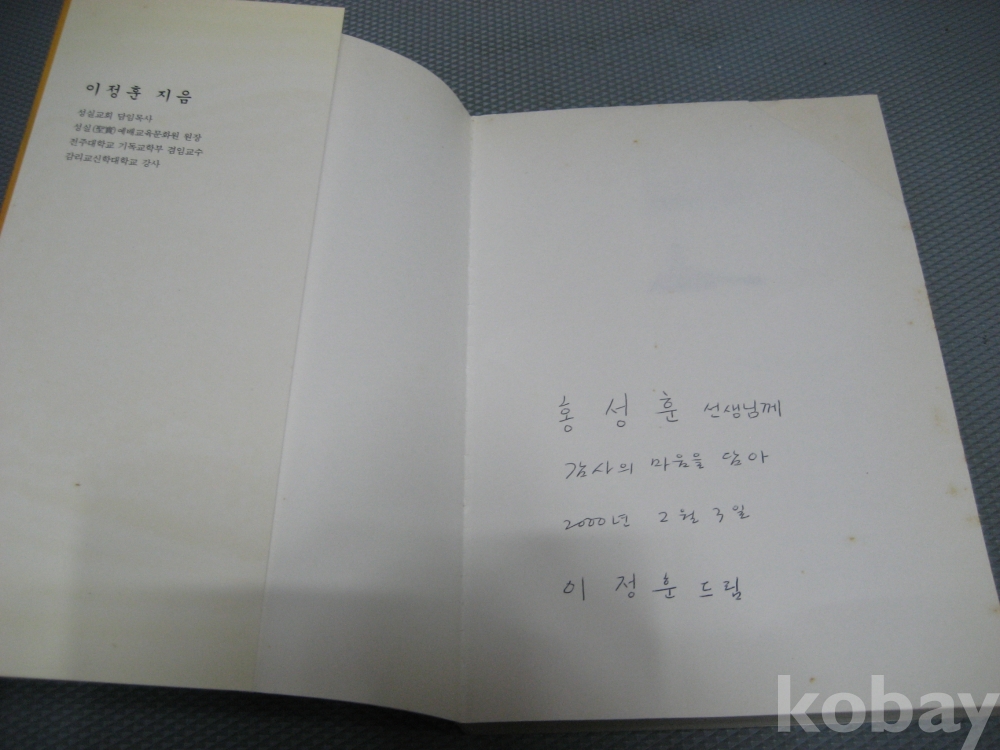 이정훈 지음
성실교회 담임목사
성실(聖實)예배교육문화원 원장
전주대학교 기독교학부 겸임교수
감리교신학대학교 강사
홍 성 훈 선생님께
감사의 마음을 담아
2000년 2월 3일
이 정 훈 드림
kobay